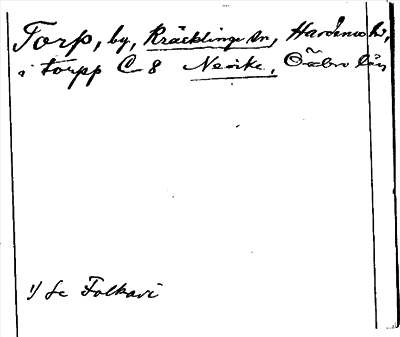 Torp, by, Kräcklinge sn, Hardemo hd,
i torpp C 8 Nerike, Örebro län
1/ Se Folkavi